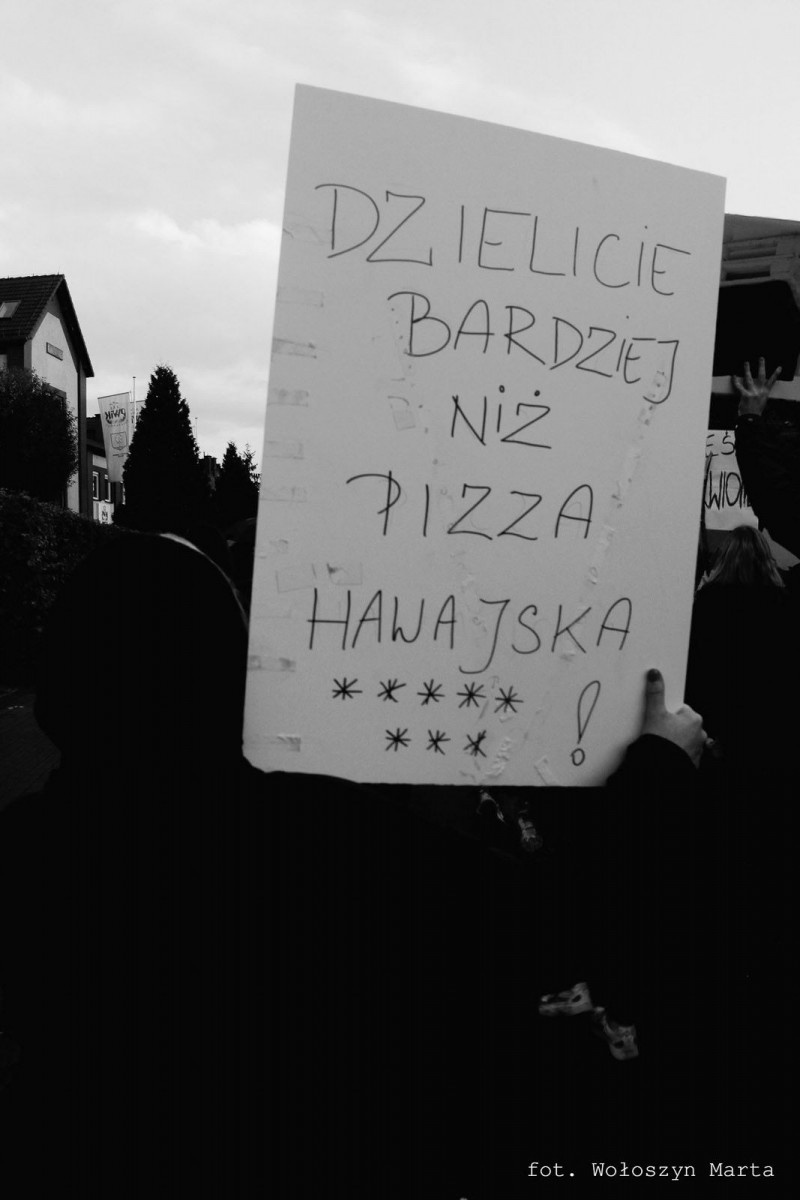 DZIELICIE
BARDZIEJ
NIŻ
PIZZA
HAWAJSKA
*****
*** !
fot. Wołoszyn Marta